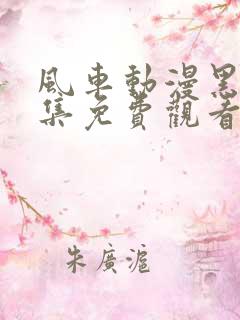 風車動漫黑
集免費觀看
朱廣滬